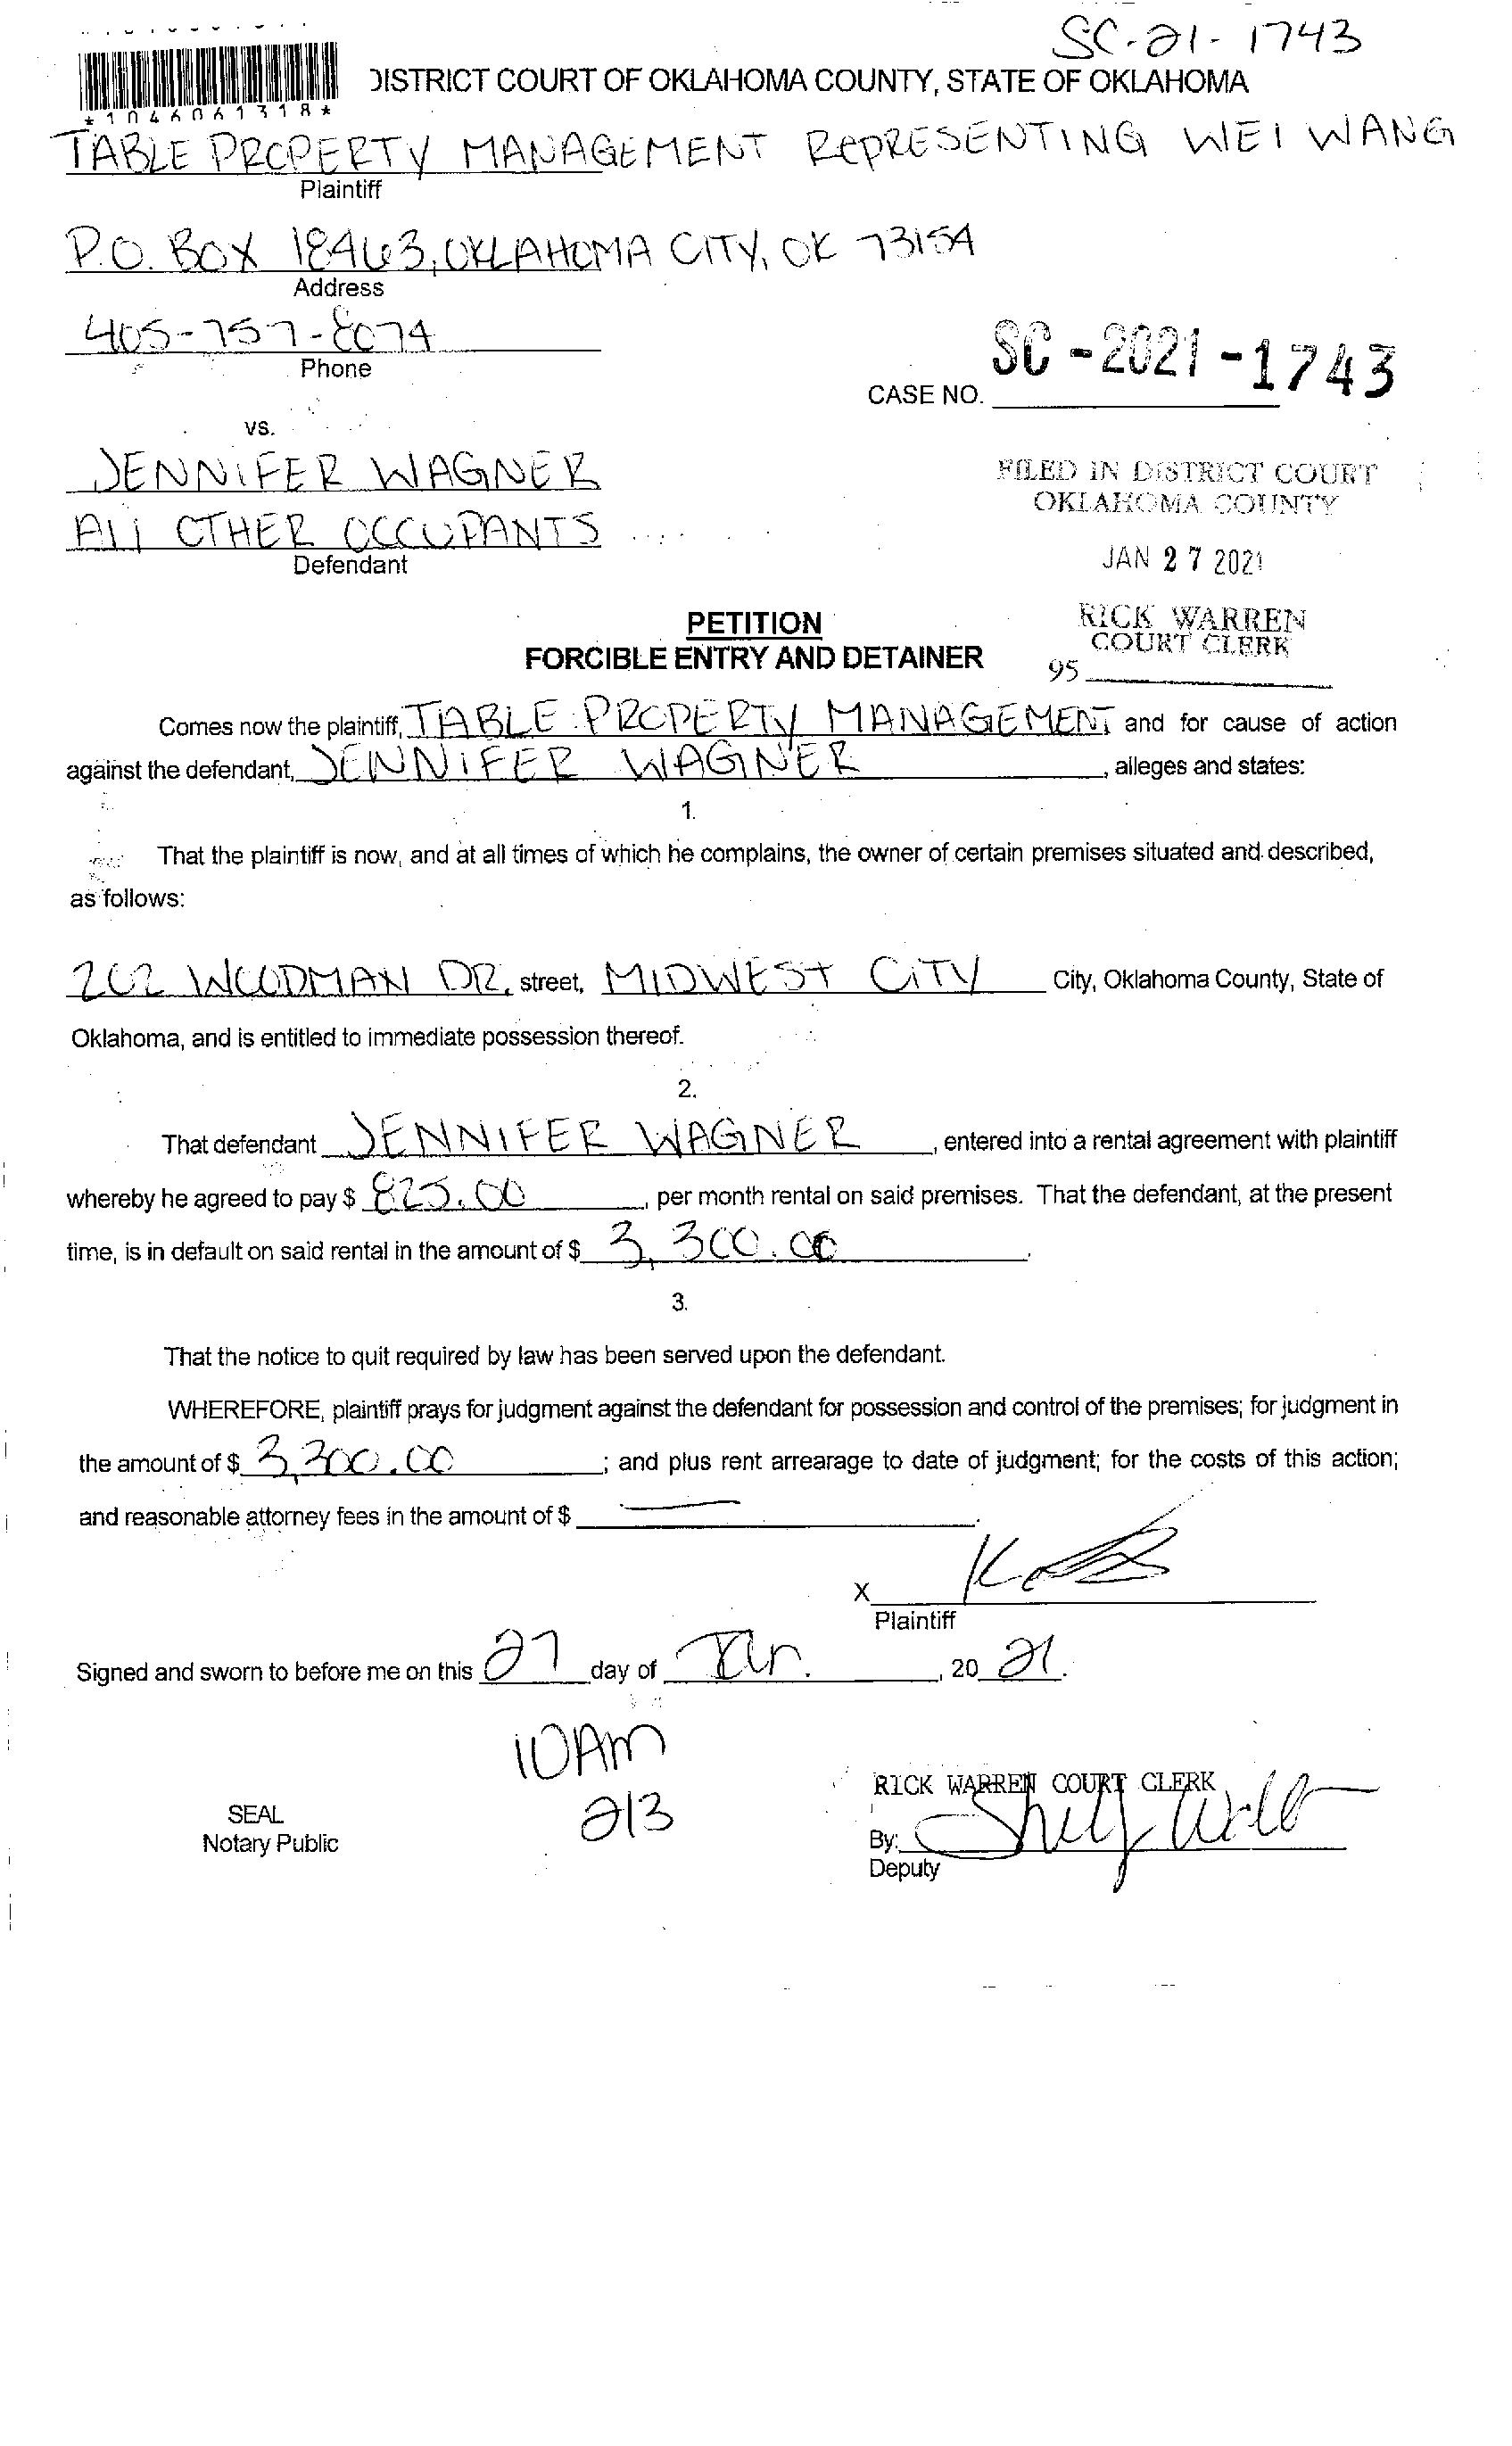 SC-21-1743
DISTRICT COURT OF OKLAHOMA COUNTY, STATE OF OKLAHOMA
*1046061318*
TABLE PROPERTY MANAGEMENT REPRESENTING WEI WANG
Plaintiff
P.O. BOX 18463, OKLAHOMA CITY, OK 73154
Address
405-757-8074
Phone
SC-2021-1743
CASE NO.
vs.
JENNIFER WAGNER
FILED IN DISTRICT COURT
OKLAHOMA COUNTY
All OTHER OCCUPANTS
Defendant
JAN 27 2021
PETITION
RICK WARREN
COURT CLERK
FORCIBLE ENTRY AND DETAINER
95
Comes now the plaintiff, TABLE PROPERTY MANAGEMENT and for cause of action
against the defendant, JENNIFER WAGNER, alleges and states:
1.
That the plaintiff is now, and at all times of which he complains, the owner of certain premises situated and described,
as follows:
202 WOODMAN DR. street, MIDWEST CITY City, Oklahoma County, State of
Oklahoma, and is entitled to immediate possession thereof.
2.
That defendant JENNIFER WAGNER, entered into a rental agreement with plaintiff
whereby he agreed to pay $ 825.00, per month rental on said premises. That the defendant, at the present
time, is in default on said rental in the amount of $ 3,300.00.
3.
That the notice to quit required by law has been served upon the defendant.
WHEREFORE, plaintiff prays for judgment against the defendant for possession and control of the premises; for judgment in
the amount of $ 3,300.00; and plus rent arrearage to date of judgment; for the costs of this action;
and reasonable attorney fees in the amount of $ —.
X
Plaintiff
Signed and sworn to before me on this 27 day of Jan., 20 21.
10Am
2/3
RICK WARREN COURT CLERK
SEAL
Notary Public
By:
Deputy